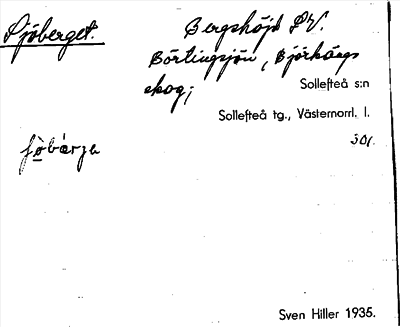 Sjöberget.
Bergshöjd SV.
Börtingsjön, Björkängs
skog;
Sollefteå s:n
Sollefteå tg., Västernorrl. l.
301.
Sven Hiller 1935.